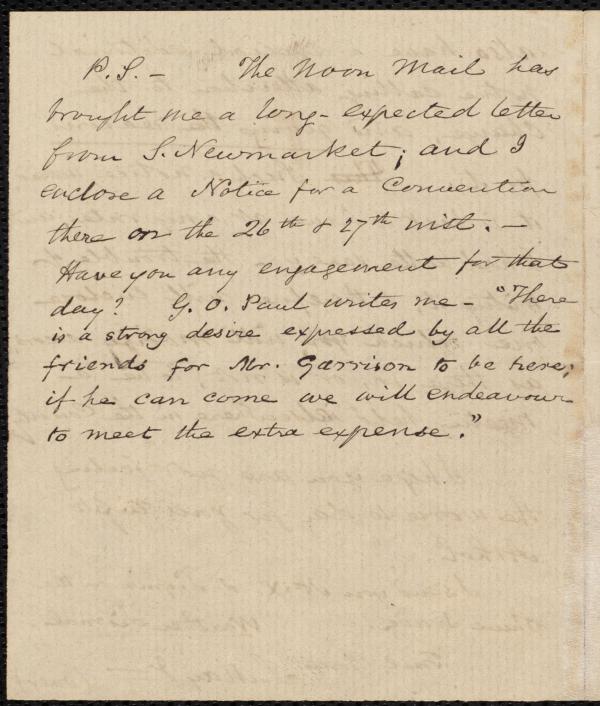 P. S. - The Noon Mail has
brought me a long-expected letter
from S. Newmarket; and I
enclose a Notice for a Convention
there on the 26th & 27th inst. -
Have you any engagement for that
day? G. O. Paul writes me - "There
is a strong desire expressed by all the
friends for Mr. Garrison to be here;
if he can come we will endeavour
to meet the extra expense."